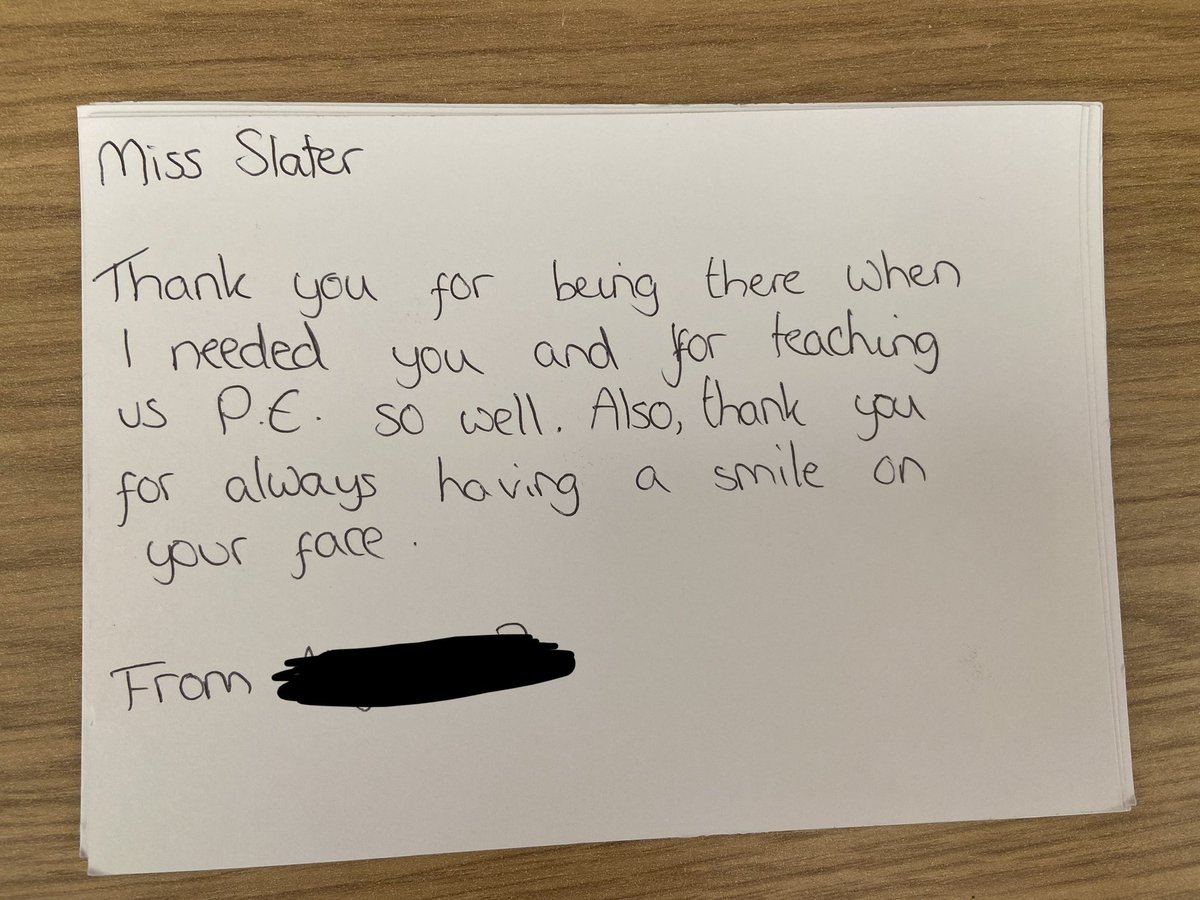 Miss Slater
Thank you for being there when
I needed you and for teaching
us P.E. so well. Also, thank you
for always having a smile on
your face.
From